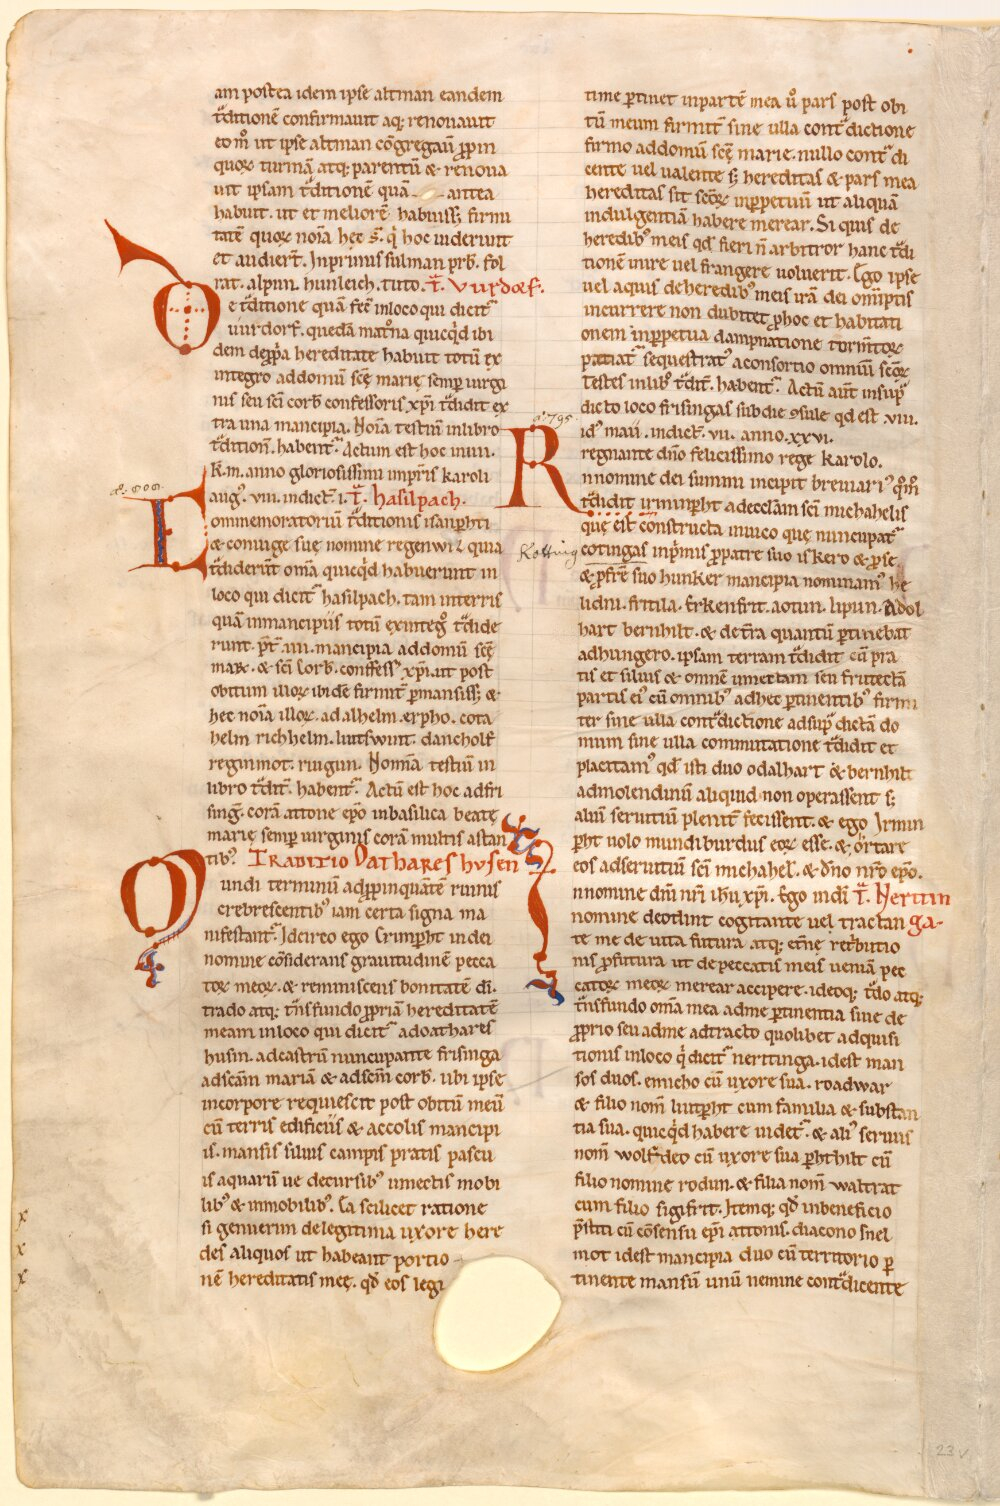 am postea idem ipse altman eandem
t̃ditionẽ confirmauit atq; renouauit
eo m̊ ut ipse altman cõgregauit ꝓpin
quoꝝ turmã atq; parentũ & renoua
uit ipsam t̃ditionẽ quã antea
habuit. ut et meliorẽ habuiss; firmi
tatẽ quoꝝ noĩa hęc s̃. q̇ hoc uiderunt
et audiert̃. Inprimis sulman prb̃. fol
rat. alpun. hunleich. tuto. T̃. Vurdorf.
De t̃ditione quã fec̃ inloco qui dicit̃
uurdorf. quedã mat̊na quicq̇d ibi
dem deꝓp̃a hereditate habuit totũ ex
integro addomũ scę̃ marię semꝑ uirgi
nis seu sc̃i corb̃ confessoris xp̃i t̃didit ex
tra una mancipia. Noĩa testiũ inlibro
t̃dition̄. habent̃. Actum est hoc inuii.
k̃.m̃. anno gloriosissimi imp̃ris karoli
aug̃. viii. indict̃. i. T̃. hasilpach.
a͛. 808.
Commemoratoriũ t̃ditionis isanꝑhti
& coniuge suę nomine regenwiz quia
t̃diderũt om̃a quicq̇d habuerunt in
loco qui dicit̃ hasilpach. tam interris
quã inmancipiis totũ exintegro t̃dide
runt. p̃t̃ .iiii. mancipia addomũ scę̃
mar̃. & sc̃i corb̃. confess̃ xp̃i. ut post
obitum illoꝝ ibidẽ firmit̃ ꝑmansiss; &
hęc noĩa illoꝝ. adalhelm. erpho. cota
helm richhelm. liutswint. dancholf
reginmot. riugun. Nomĩa testiũ in
libro t̃dit̃. habent̃. Actũ est hoc adfri
sing̃. corã attone ep̃o inbasilica beatę
marię semꝑ uirginis corã multis astan
tib᾿. TRADITIO DAthareshusen
Mundi terminũ adꝓpinquãte ruinis
crebrescentib᾿ iam certa signa ma
nifestant̃. Idcirco ego Crimꝑht indei
nomine cõsiderans grauitudinẽ pecca
toꝝ meoꝝ. & reminiscens bonitatẽ di.
trado atq; t̃nsfundo ꝓpriã hereditatẽ
meam inloco qui dicit̃ adoathares
husin. adcastrũ nuncupante frisinga
adscãm mariã & adscm̃ corb̃. ubi ipse
incorpore requiescit post obitũ meũ
cũ terris edificiis & accolis mancipi
is. mansis siluis campis pratis pascu
is aquarũ ue decursib᾿ umectis mobi
lib᾿ & inmobilib᾿. Ea scilicet ratione
si genuerim delegitima uxore here
des aliquos ut habeant portio
nẽ hereditatis meę. qđ eos legi
time ꝑtinet inpartẽ mea ů pars post obi
tũ meum firmit̃ sine ulla cont̃dictione
firmo addomũ scę̃ marie. nullo cont̃di
cente uel ualente s; hereditas & pars mea
hereditas sit scõꝝ inꝑpetuũ ut aliquã
indulgentiã habere merear. Si quis de
heredib᾿ meis qđ fieri ñ arbitror hanc t̃di
tionẽ inire uel frangere uoluerit. Ego ipse
uel aquis deheredib᾿ meis irã dei omĩptis
incurrere non dubitet ꝓhoc et habitati
onem inꝑpetua dampnatione torm̃toꝝ
patiat̃ sequestrat᾿ aconsortio omniũ scõꝝ
Testes inlib̊ t̃dit̃. habent̃. Actũ aut̃ insup̃
dicto loco frisingas subdie ꝯsule qđ est .viii.
id᾿ maii .indict̃. vii. anno. xxvi.
a͛. 795
regnante dño felicissimo rege karolo.
In nomine dei summi incipit breuiari᾿ q̊m̊
t̃didit irminꝑht adecclãm sc̃i michahelis
quę est constructa inuico quę nuncupat̃
Kotting
cotingas inp̃mis ꝓpatre suo iskero & ꝓse
& ꝓfr̃e suo hunker mancipia nominam᾿ he
lidni. fritila. Erkenfrit. aotun. lipun. Adol
hart bernhilt. & det̃ra quantũ ꝑtinebat
adhungero. ipsam terram t̃didit cũ pra
tis et siluis & omnẽ umectam seu frutectã
partis ei᾿ cũ omnib᾿ adhęc ꝑtinentib᾿ firmi
ter sine ulla cont̃dictione adsup̃ dictã do
mum sine ulla commutatione t̃didit et
placitam᾿ qđ isti duo odalhart & bernhilt
admolendinũ aliquid non operassent s;
aliũ seruitiũ plenit̃ fecissent. & ego Irmin
ꝑht uolo mundiburdus eoꝝ esse. & ortare
eos adseruitiũ sc̃i michahel̃. & dño nr̃o ep̃o.
In nomine dñi nr̃i ihũ xp̃i. Ego indi T̃. Nerttin
nomine deotlint cogitante uel tractan ga.
te me de uita futura atq; etñe ret̃butio
nis ꝓfutura ut depeccatis meis ueniã pec
catoꝝ meoꝝ merear accipere. ideoq; t̃do atq;
t̃nsfundo om̃a mea adme ꝑtinentia siue de
ꝓprio seu adme adtracto quolibet adquisi
tionis inloco q̇ dicit̃ nerttinga. idest man
sos duos. emicho cũ uxore sua. roadwar
& filio nom̃ liutꝑht cum familia & substan
tia sua. quicq̇d habere uidet̃. & ali᾿ seruus
nom̃ wolfdeo cũ uxore sua ꝑhthilt cũ
filio nomine rodun. & filia nom̃ waltrat
cum filio sigifrit. Itemq; qđ inbeneficio
p̃stiti cũ cõsensu epĩ attonis. diacono snel
mot idest mancipia duo cũ territorio ꝑ
tinente mansũ unũ nemine cont̃dicente
x
x
x
23v